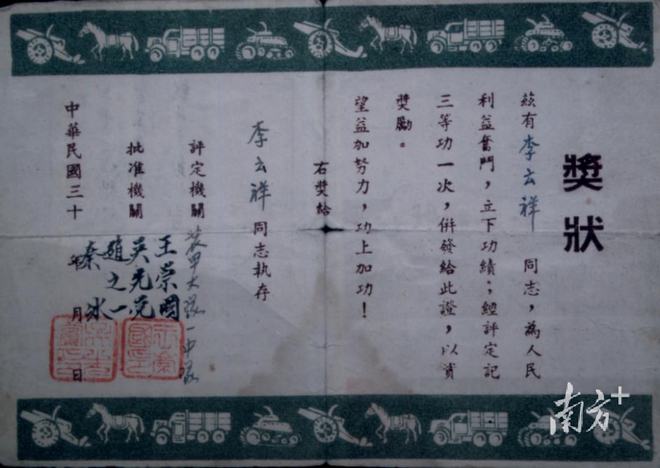 獎狀
茲有李云祥 同志，為人民
利益奮鬥，立下功績；經評定記
三等功一次，併發給此證，以資
獎勵。
望益加努力，功上加功！
右獎給
李云祥同志執存
評定機關 裝甲大隊一中隊
批准機關
王崇國
吳先
趙之一
秦冰
中華民國三十 年 月 日
南方+